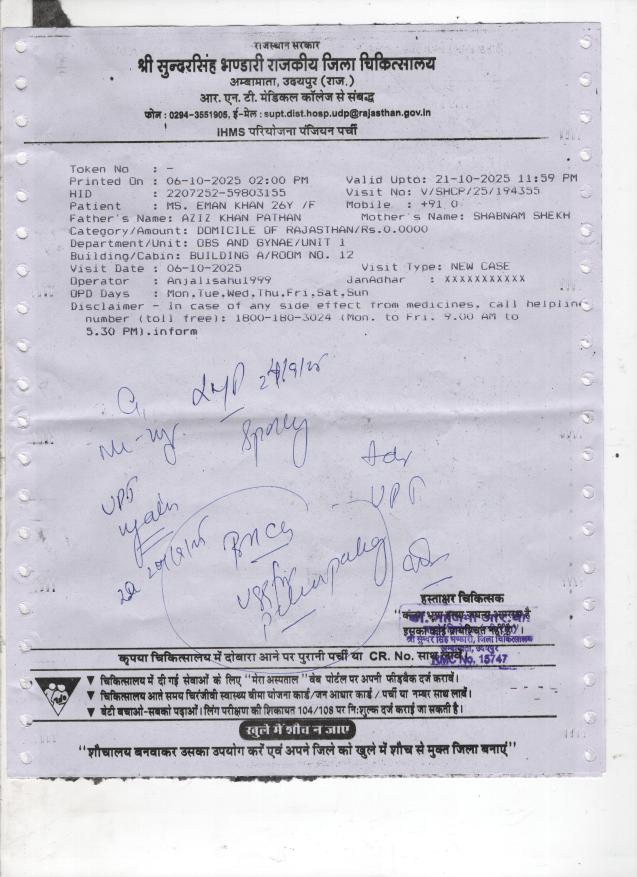 राजस्थान सरकार
श्री सुन्दरसिंह भण्डारी राजकीय जिला चिकित्सालय
अम्बामाता, उदयपुर (राज.)
आर. एन. टी. मेडिकल कॉलेज से संबद्ध
फोन : 0294-3551905, ई-मेल : supt.dist.hosp.udp@rajasthan.gov.in
IHMS परियोजना पंजियन पर्ची
Token No : -
Printed On : 06-10-2025 02:00 PM Valid Upto: 21-10-2025 11:59 PM
HID : 2207252-59803155 Visit No: V/SHCP/25/194355
Patient : MS. EMAN KHAN 26Y /F Mobile : +91 0
Father's Name: AZIZ KHAN PATHAN Mother's Name: SHABNAM SHEKH
Category/Amount: DOMICILE OF RAJASTHAN/Rs.0.0000
Department/Unit: OBS AND GYNAE/UNIT 1
Building/Cabin: BUILDING A/ROOM NO. 12
Visit Date : 06-10-2025 Visit Type: NEW CASE
Operator : Anjalisahu1999 JanAdhar : XXXXXXXXXXX
OPD Days : Mon,Tue,Wed,Thu,Fri,Sat,Sun
Disclaimer - in case of any side effect from medicines, call helpline
number (toll free): 1800-180-3024 (Mon. to Fri. 9.00 AM to
5.30 PM).inform
LMP
UPT
UPT
हस्ताक्षर चिकित्सक
श्री सुन्दर सिंह भण्डारी, जिला चिकित्सालय
RMC No. 15747
कृपया चिकित्सालय में दोबारा आने पर पुरानी पर्ची या CR. No. साथ लावें
चिकित्सालय में दी गई सेवाओं के लिए "मेरा अस्पताल" वेब पोर्टल पर अपनी फीडबैक दर्ज करावें।
चिकित्सालय आते समय चिरंजीवी स्वास्थ्य बीमा योजना कार्ड/जन आधार कार्ड / पर्ची या नम्बर साथ लावें।
बेटी बचाओ-सबको पढ़ाओ। लिंग परीक्षण की शिकायत 104/108 पर नि:शुल्क दर्ज कराई जा सकती है।
खुले में शौच न जाए
"शौचालय बनवाकर उसका उपयोग करें एवं अपने जिले को खुले में शौच से मुक्त जिला बनाएं"